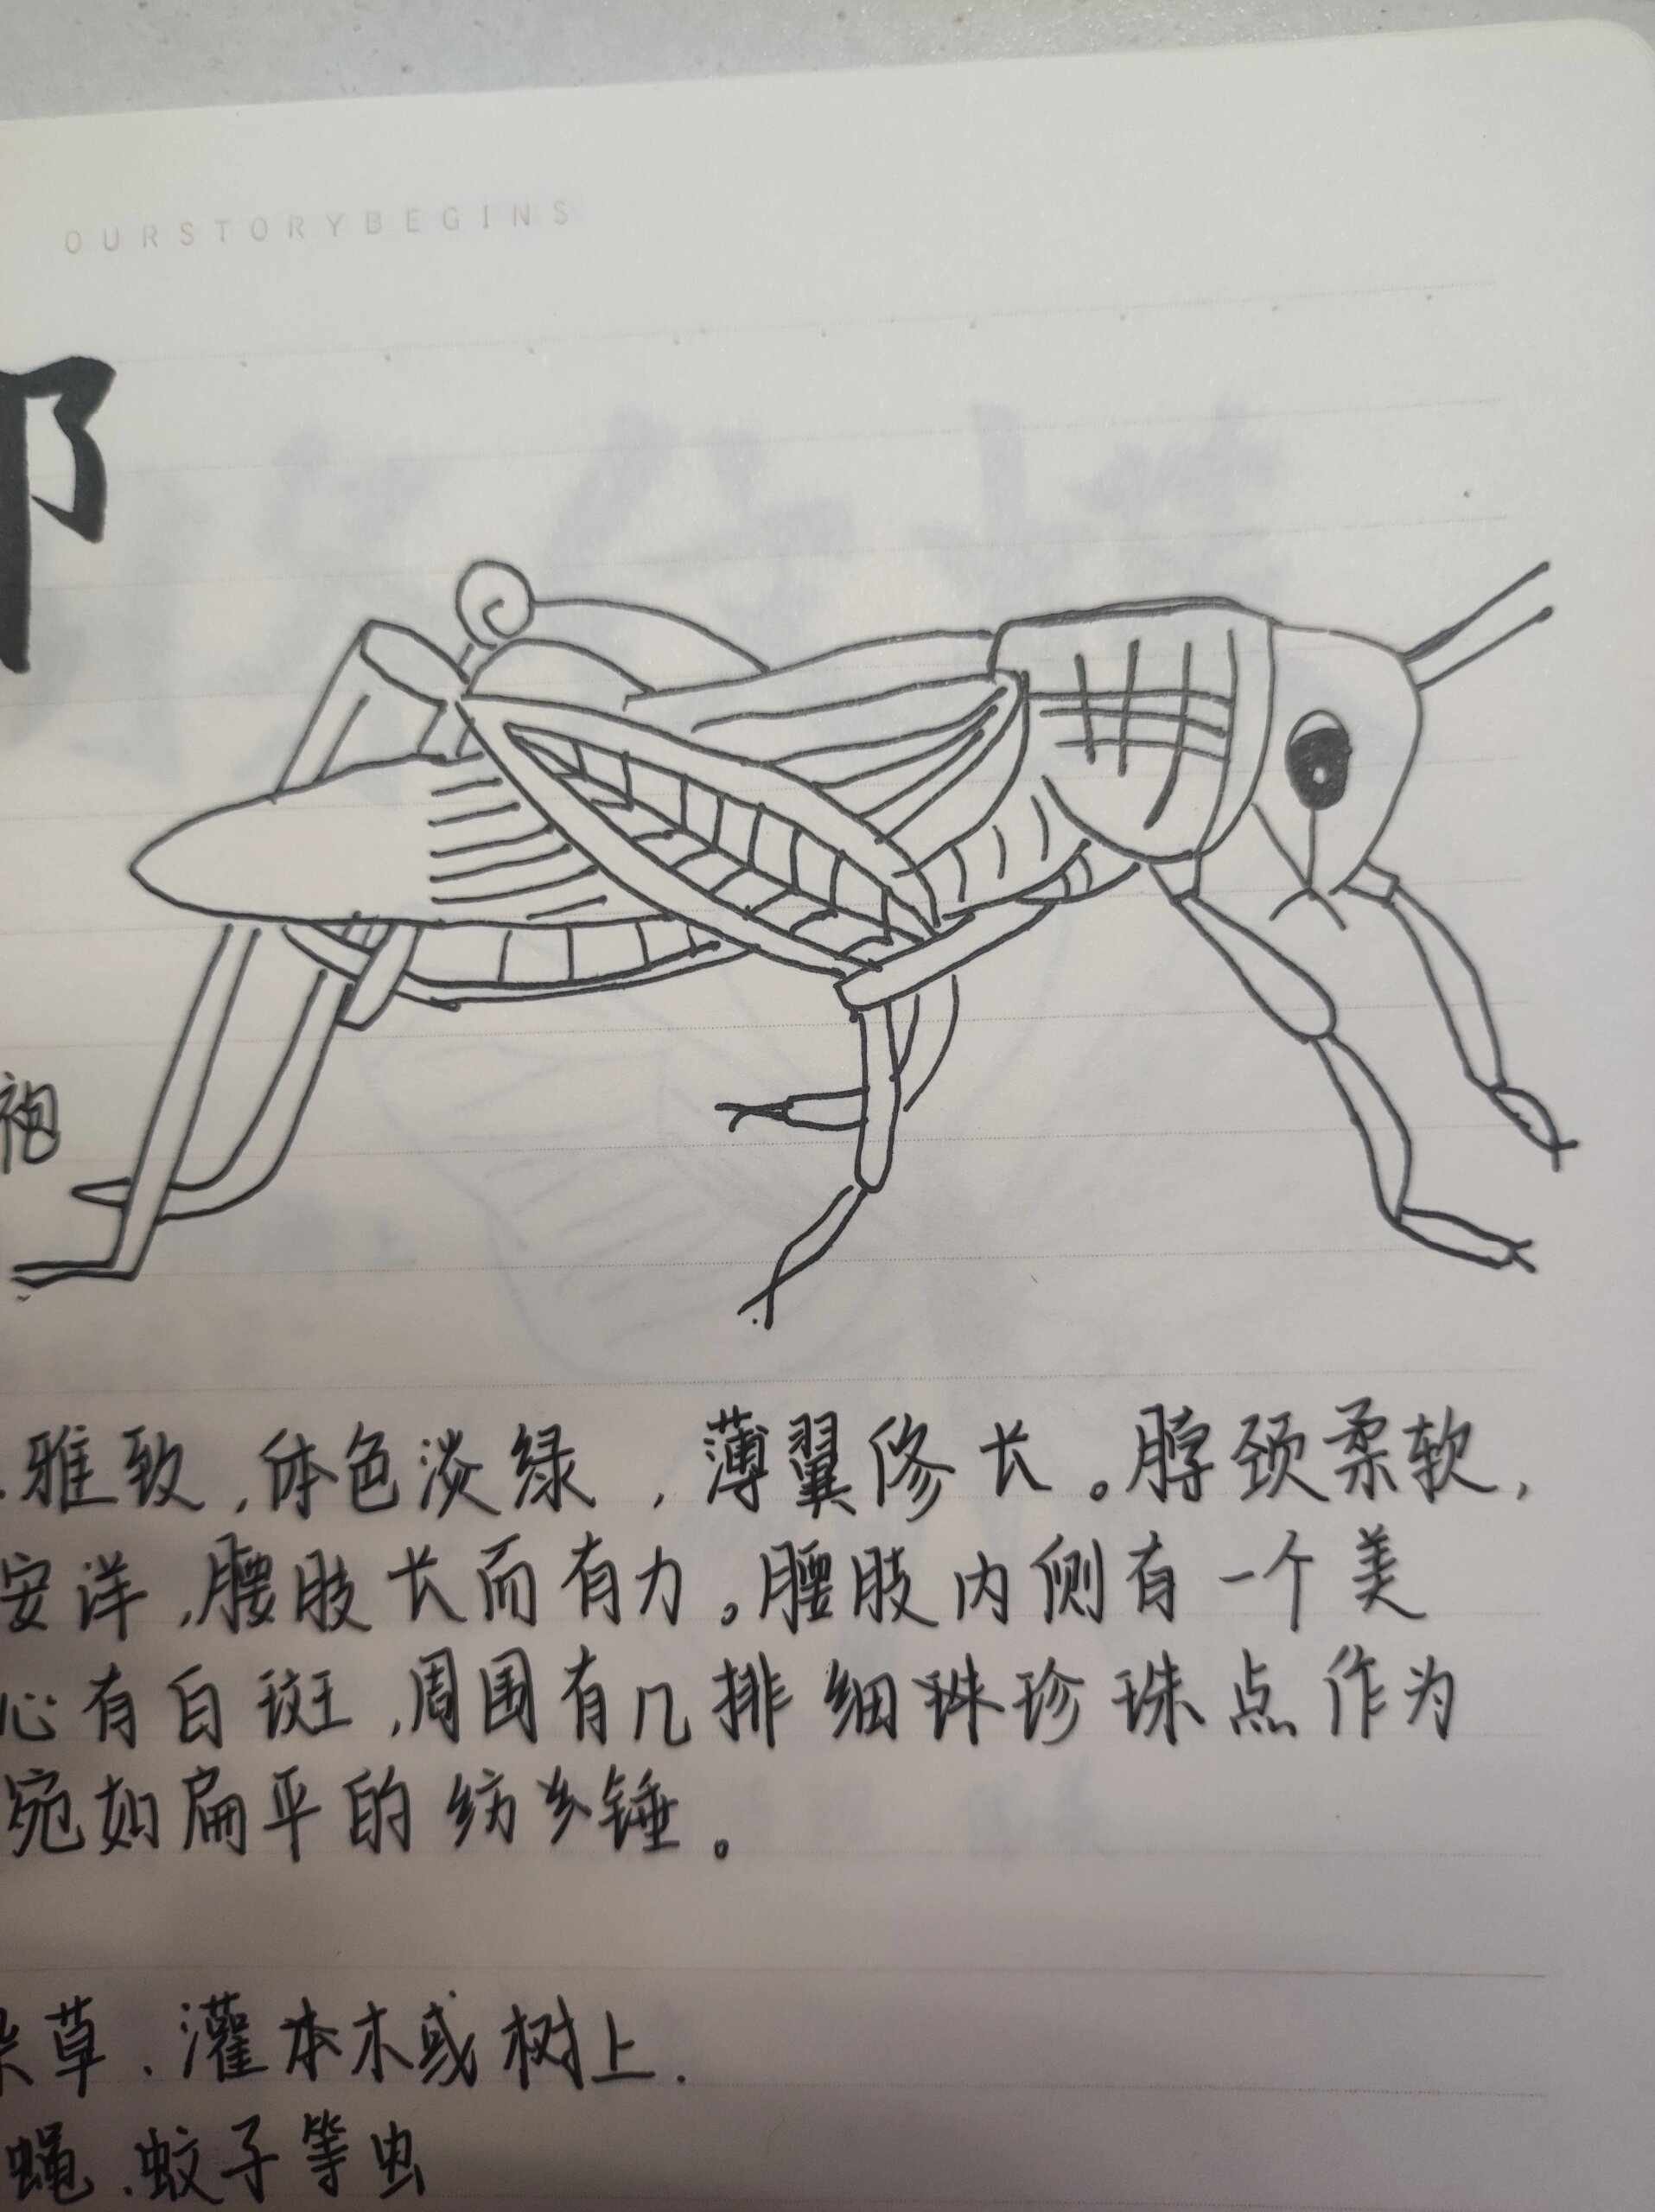 OURSTORYBEGINS
袍
雅致,体色淡绿,薄翼修长。脖颈柔软,
安洋,腰肢长而有力。腰肢内侧有一个美
心有白斑,周围有几排细珠珍珠点作为
宛如扁平的纺乡锤。
草、灌本木或树上.
蝇、蚊子等虫